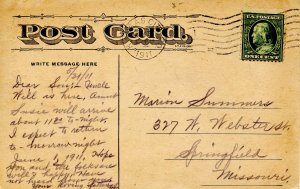 Post Card.
WRITE MESSAGE HERE
1911
U.S. POSTAGE
ONE CENT
5/31/11
Dear Son: Uncle
Will is here, Aunt
Susie will arrive
about 11 to-night.
I expect to return
to-morrow night
June 1, 1911. Hope
you and the
will happy. Have
not heard from
Your loving
Marion Summers
327 W. Webster St.
Springfield
Missouri.